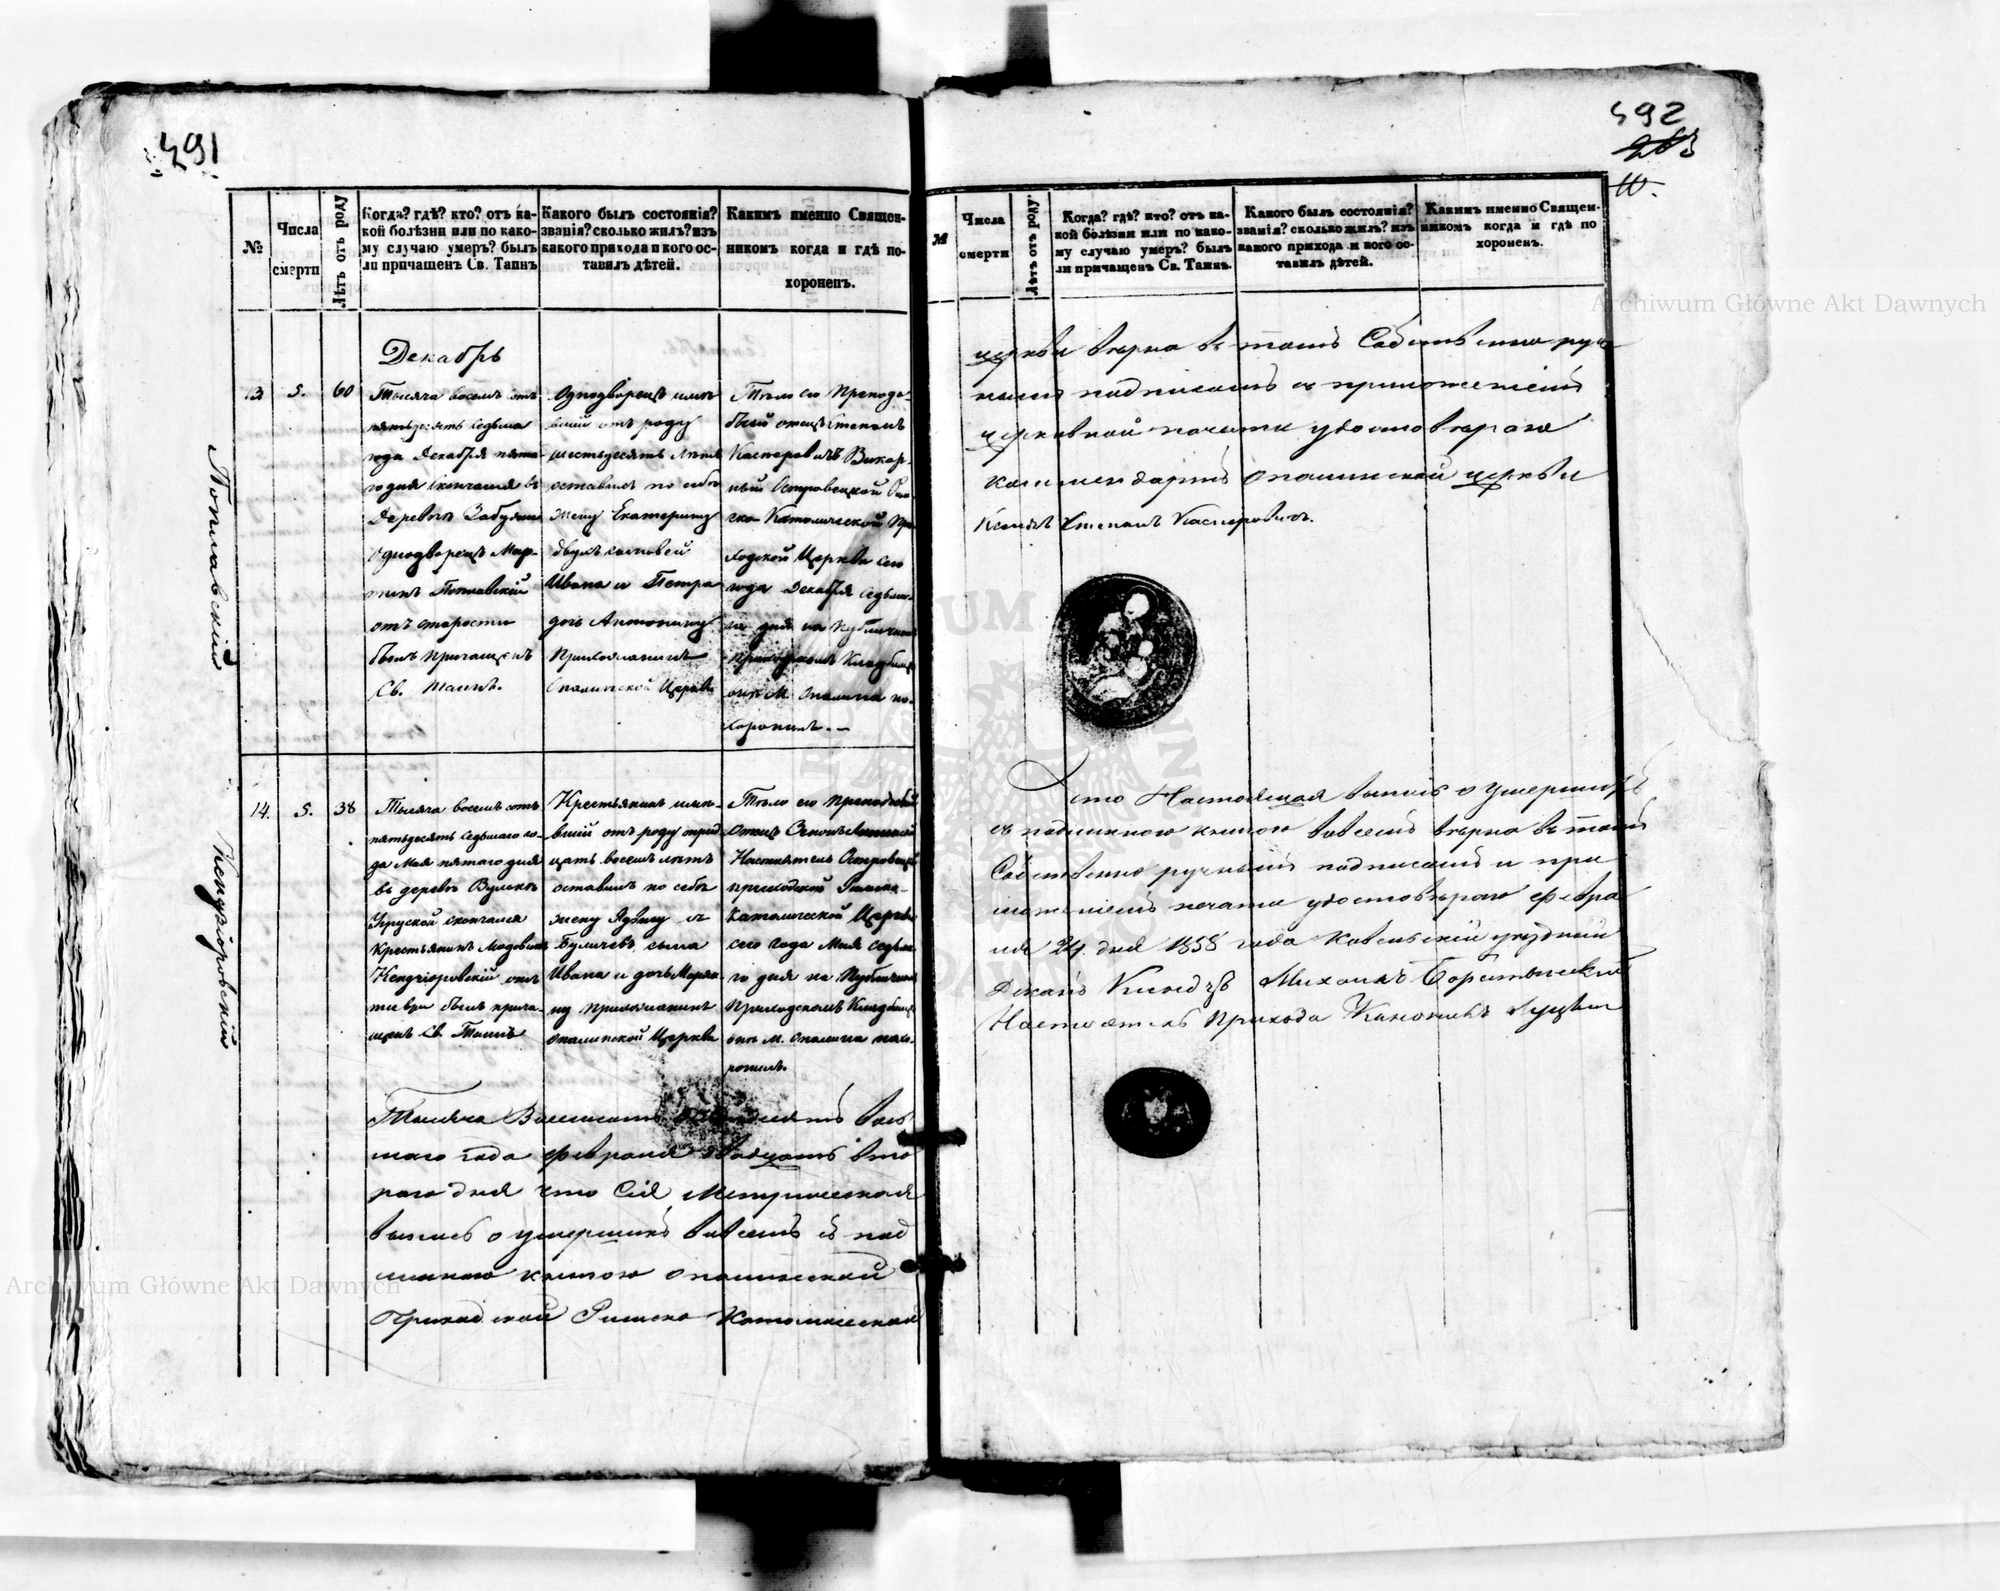 491
№
Числа
смерти
Лѣтъ отъ роду
Когда? гдѣ? кто? отъ ка-
кой болѣзни или по како-
му случаю умеръ? былъ
ли причащенъ Св. Таинъ
Какого былъ состоянія?
званія? сколько жилъ? изъ
какого прихода и кого ос-
тавилъ дѣтей.
Какимъ именно Священ-
никомъ когда и гдѣ по-
хороненъ.
Декабрь
13.
5.
60
Тысяча восемь сотъ
пятьдесятъ седьма
года Декабря пята-
го дня скончался въ
Деревнѣ Забужьи
Однодворецъ Мар-
тинъ Поплавскій
отъ старости
былъ причащенъ
Св. Таинъ.
Однодворецъ имѣ
вшій отъ роду
шестьдесятъ лѣтъ
оставилъ по себѣ
жену Екатерину
двухъ сыновей
Ивана и Петра
дочь Антонину
Прихожанинъ
Опалинской Церкви
Тѣло его Преподо-
бный отецъ Степанъ
Касперовичъ Викар-
ный Островецкой Рим
ско Католической При
ходской Церкви сего
года Декабря седьма-
го дня на Публичномъ
приходскомъ Кладбищѣ
онъ М. Опалина по-
хоронилъ. —
Поплавскій
14.
5.
38
Тысяча восемь сотъ
пятьдесятъ седьмаго го-
да Мая пятаго дня
въ деревнѣ Вулькѣ
Угруской скончался
Крестьянинъ Людовикъ
Кендзіоровскій отъ
былъ прича-
щенъ Св. Таинъ
Крестьянинъ имѣ-
вшій отъ роду трид
цать восемь лѣтъ
оставилъ по себѣ
жену Ядвигу съ
сына
Ивана и дочь Марья-
ну прихожанинъ
Опалинской Церкви
Тѣло его Преподобный
Отецъ
Настоятель Островецкой
приходской Римско-
Католической Церкви
сего года Мая седьма-
го дня на Публичномъ
Приходскомъ Кладбищѣ
онъ М. Опалина похо-
ронилъ.
Кендзіоровскій
Тысяча Восемсотъ пятдесятъ вось
маго года февраля двадцать вто
раго дня что Сія Метрическая
выпись о умершихъ вовсемъ съ под
линною книгою Опалинской
Приходской Римско Католической
492
263
№
Числа
смерти
Лѣтъ отъ роду
Когда? гдѣ? кто? отъ ка-
кой болѣзни или по како-
му случаю умеръ? былъ
ли причащенъ Св. Таинъ.
Какого былъ состоянія?
званія? сколько жилъ? изъ
какого прихода и кого ос-
тавилъ дѣтей.
Какимъ именно Священ-
никомъ когда и гдѣ по
хороненъ.
церкви вѣрна въ томъ Собственно руч
нымъ подписомъ съ приложеніемъ
церковной печати удостовѣряю
коммендаржъ Опалинской церкви
Ксендзъ Степанъ Касперовичъ.
Что Настоящая выпись о умершихъ
съ подлинною книгою вовсемъ вѣрна въ томъ
Собственно ручнымъ подписомъ и при
ложеніемъ печати удостовѣряю февра
ля 24 дня 1858 года Ковельскій уѣздный
Деканъ Ксендзъ Михаилъ
Настоятель Прихода Каноникъ Луцкій
Archiwum Główne Akt Dawnych
Archiwum Główne Akt Dawnych